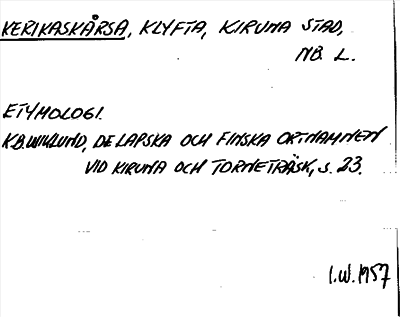 KERIKASKÅRSA, KLYFTA, KIRUNA STAD,
NB. L.
ETYMOLOGI.
K.B. WIKLUND, DE LAPSKA OCH FINSKA ORTNAMNEN
VID KIRUNA OCH TORNETRÄSK, S. 23.
I.W. 1957